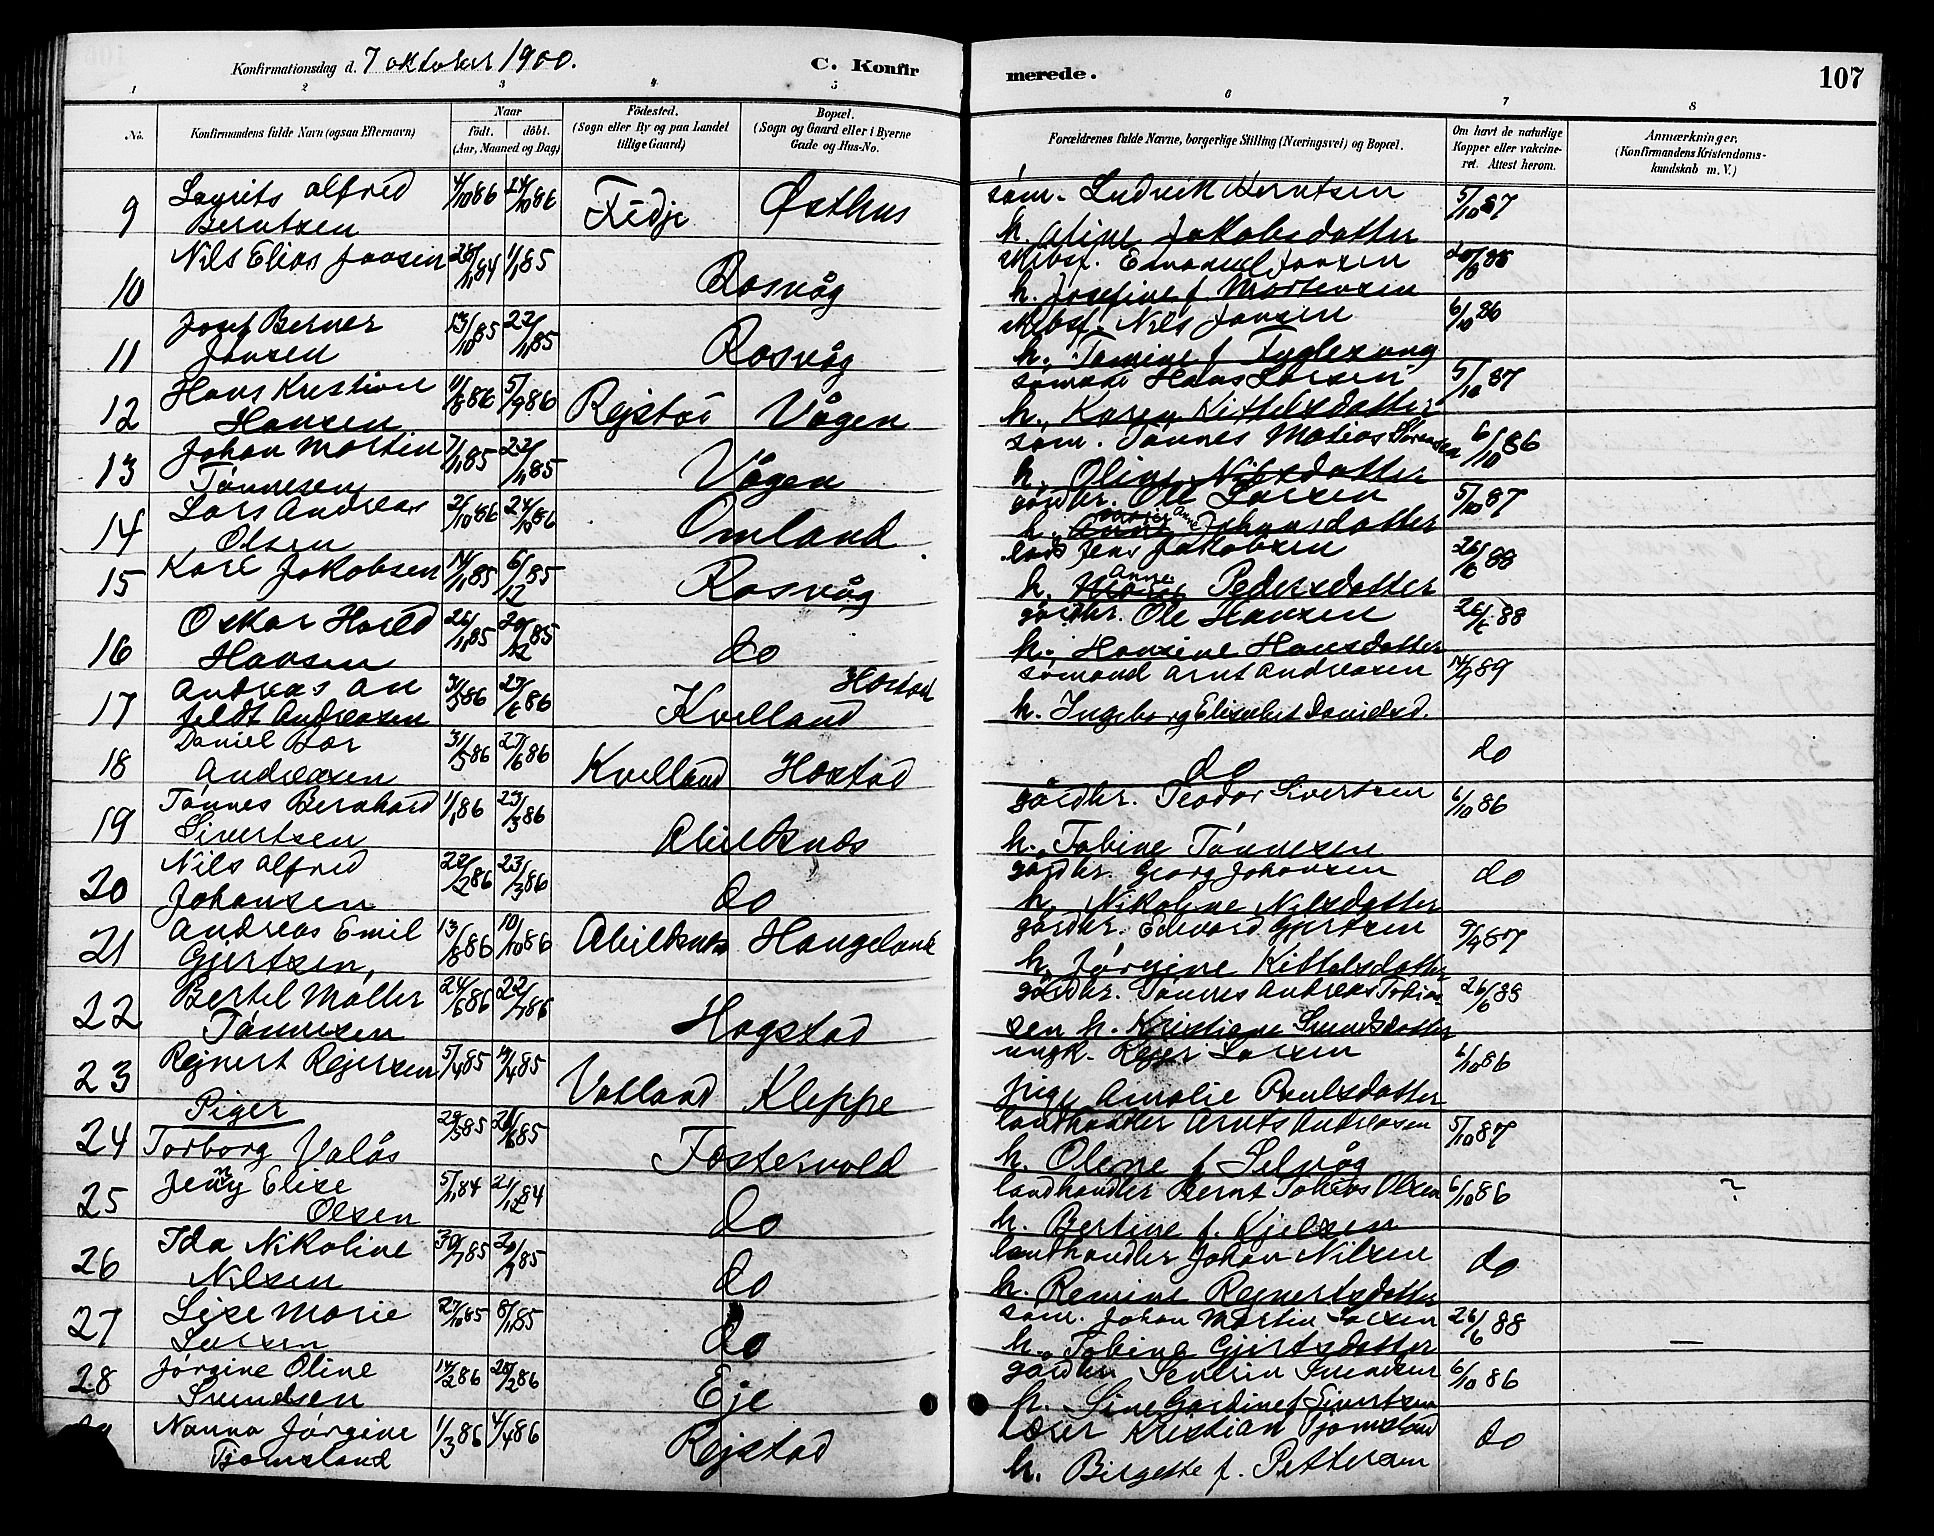 Konfirmationsdag d. 7 oktober 1900.
C. Konfirmerede.
107
1 2 3 4 5 6 7 8
No.
Konfirmandens fulde Navn (ogsaa Efternavn)
Naar
født. døbt.
(Aar, Maaned og Dag)
Fødested.
(Sogn eller By og paa Landet
tillige Gaard)
Bopæl.
(Sogn og Gaard eller i Byerne
Gade og Hus-No.
Forældrenes fulde Navne, borgerlige Stilling (Næringsvei) og Bopæl.
Om havt de naturlige
Kopper eller vakcine-
ret. Attest herom.
Anmærkninger,
(Konfirmandens Kristendoms-
kundskab m. V.)
9 Lavrits Alfred 4/10 86 24/10 86 Fidje Østhus søm. Ludvik Berntsen 5/10 87
Berntsen h. Aline Jakobsdatter
10 Nils Elias Jansen 1/1 85 Rosvåg skibsf. Emanuel Jansen
h. Josefine f. Mortensen
11 Josef Berner 13/10 85 22/11 85 Rosvåg skibsf. Nils Jansen 6/10 86
Jansen h. Tomine f. Fuglevang
12 Hans Kristian 5/9 86 Rejstad Vågen sømand Hans Larsen 5/10 87
Hansen h. Karen Kittelsdatter
13 Johan Martin 7/11 85 22/11 85 Vågen søm. Tønnes Matias Sørensen 6/10 86
Tønnesen h. Oline Nilsdatter
14 Lars Andreas 2/10 86 24/10 86 Omland gårdbr. Ole Larsen 5/10 87
Olsen h. Anne Johnsdatter
15 Karl Jakobsen 14/11 85 6/12 85 Rosvåg lods Jens Jakobsen 26/6 88
h. Anne Pedersdatter
16 Oskar Harld 26/11 85 20/12 85 do gårdbr. Ole Hansen 26/6 88
Hansen h. Hansine Hansdatter
17 Andreas An 31/5 86 27/6 86 Kvelland Hæstad sømand Arnt Andreasen 14/9 89
feldt Andreasen h. Ingeborg Elisabet Danielsd.
18 Daniel Bær 31/5 86 27/6 86 Kvelland Hæstad do do
Andreasen
19 Tønnes Bernhard 1/1 86 23/3 86 Abildsnæs gårdbr. Teodor Sivertsen 6/10 86
Sivertsen h. Tobine Tønnesen
20 Nils Alfred 22/2 86 23/3 86 do gårdbr. Georg Johansen do
Johansen h. Nikoline Nilsdatter
21 Andreas Emil 13/8 86 10/10 86 Abildsnæs Haugeland gårdbr. Edvard Gjertsen 9/9 87
Gjertsen, h. Jørgine Kittelsdatter
22 Bertel Møller 24/6 86 22/7 86 Hogstad gårdbr. Tønnes Andreas Tobias
Tønnesen sen h. Kristiane Svendsdatter
23 Rejnert Rejersen 5/4 85 Vatland Kleppe ungk. Rejer Larsen 6/10 86
pige Amalie Paulsdatter
Piger
24 Torborg Valås 29/5 85 Fostervold landhandler Arnts Andreasen 5/10 87
h. Olene f. Selvåg
25 Jenny Elise 5/11 84 21/12 84 do landhandler Bernt Tobias Olsen 6/10 86 ?
Olsen h. Bertine f. Kjelsen
26 Ida Nikoline 30/7 85 do landhandler Johan Nilsen do
Nilsen h. Remine Rejnertsdatter
27 Lise Marie 8/11 85 do søm. Johan Martin Larsen 26/6 88 —
Larsen h. Tobine Gjertsdatter
28 Jørgine Oline 14/2 86 28/2 86 Eje gårdbr. Severin Svendsen 6/10 86
Svendsen h. Sine Gardine f. Sivertsen
Nanna Jørgine 1/3 86 4/4 86 Rejstad Lærer Kristian Tjomsland do
Tjomsland h. Birgette f. Pettersen